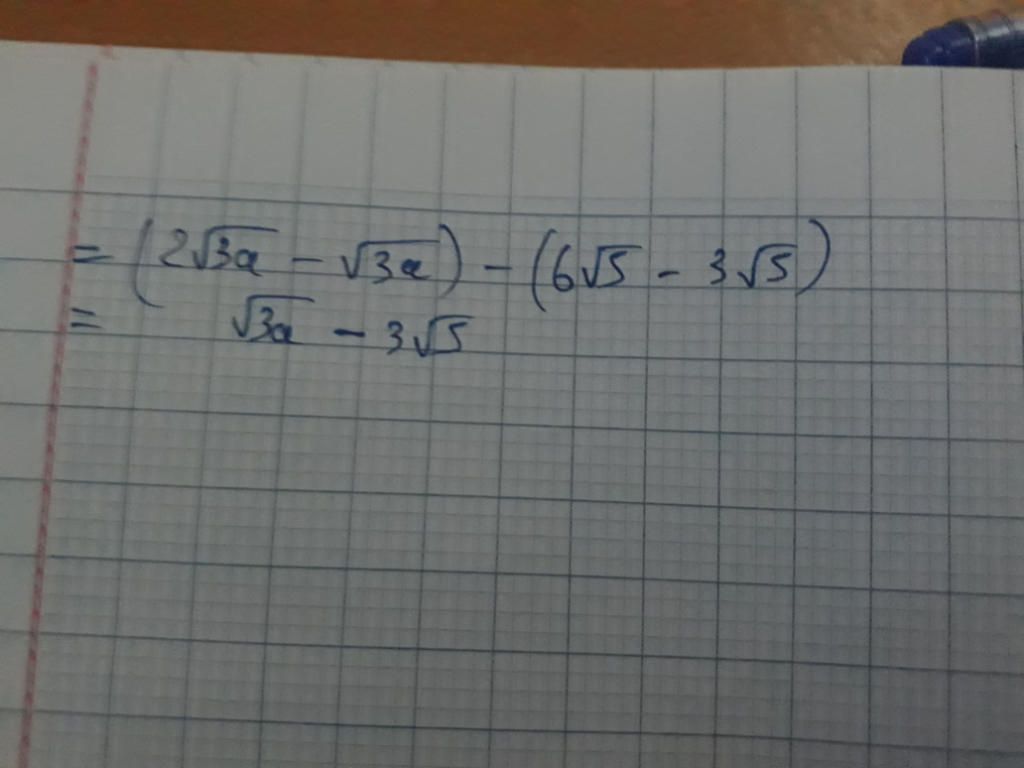 = (2√3a - √3a) - (6√5 - 3√5)
= √3a - 3√5